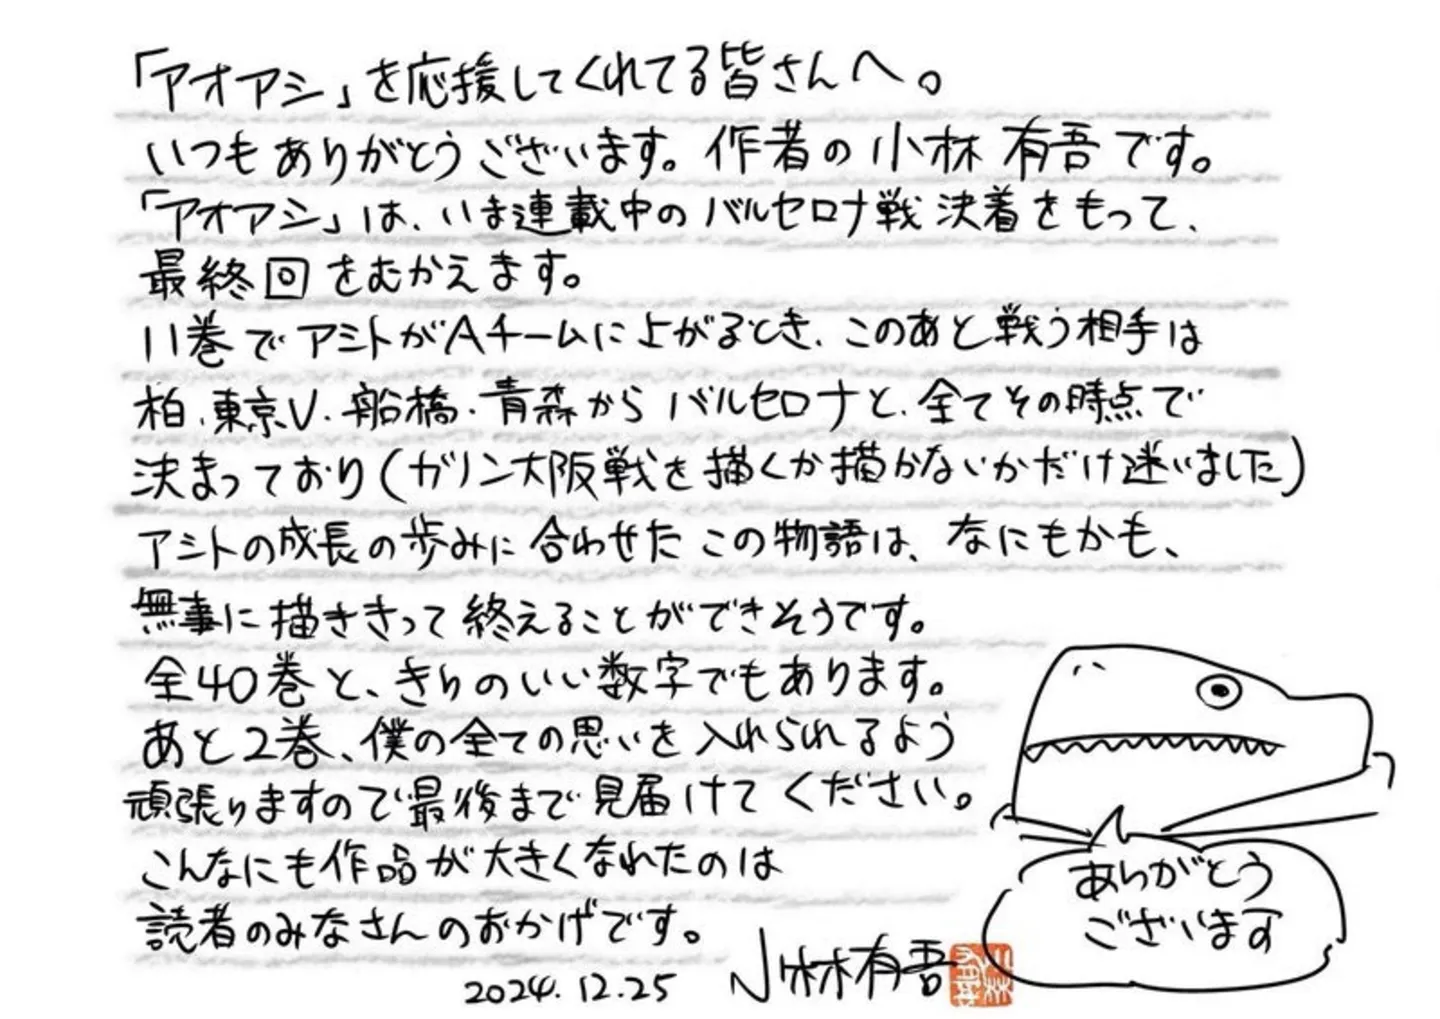 「アオアシ」を応援してくれてる皆さんへ。
いつもありがとうございます。作者の小林有吾です。
「アオアシ」は、いま連載中のバルセロナ戦決着をもって、
最終回をむかえます。
11巻でアシトがAチームに上がるとき、このあと戦う相手は
柏、東京V、船橋、青森からバルセロナと、全てその時点で
決まっており(ガノン大阪戦を描くか描かないかだけ迷いました)
アシトの成長の歩みに合わせたこの物語は、なにもかも、
無事に描ききって終えることができそうです。
全40巻と、きりのいい数字でもあります。
あと2巻、僕の全ての思いを入れられるよう
頑張りますので最後まで見届けてください。
こんなにも作品が大きくなれたのは
読者のみなさんのおかげです。
2024.12.25 小林有吾
ありがとう
ございます